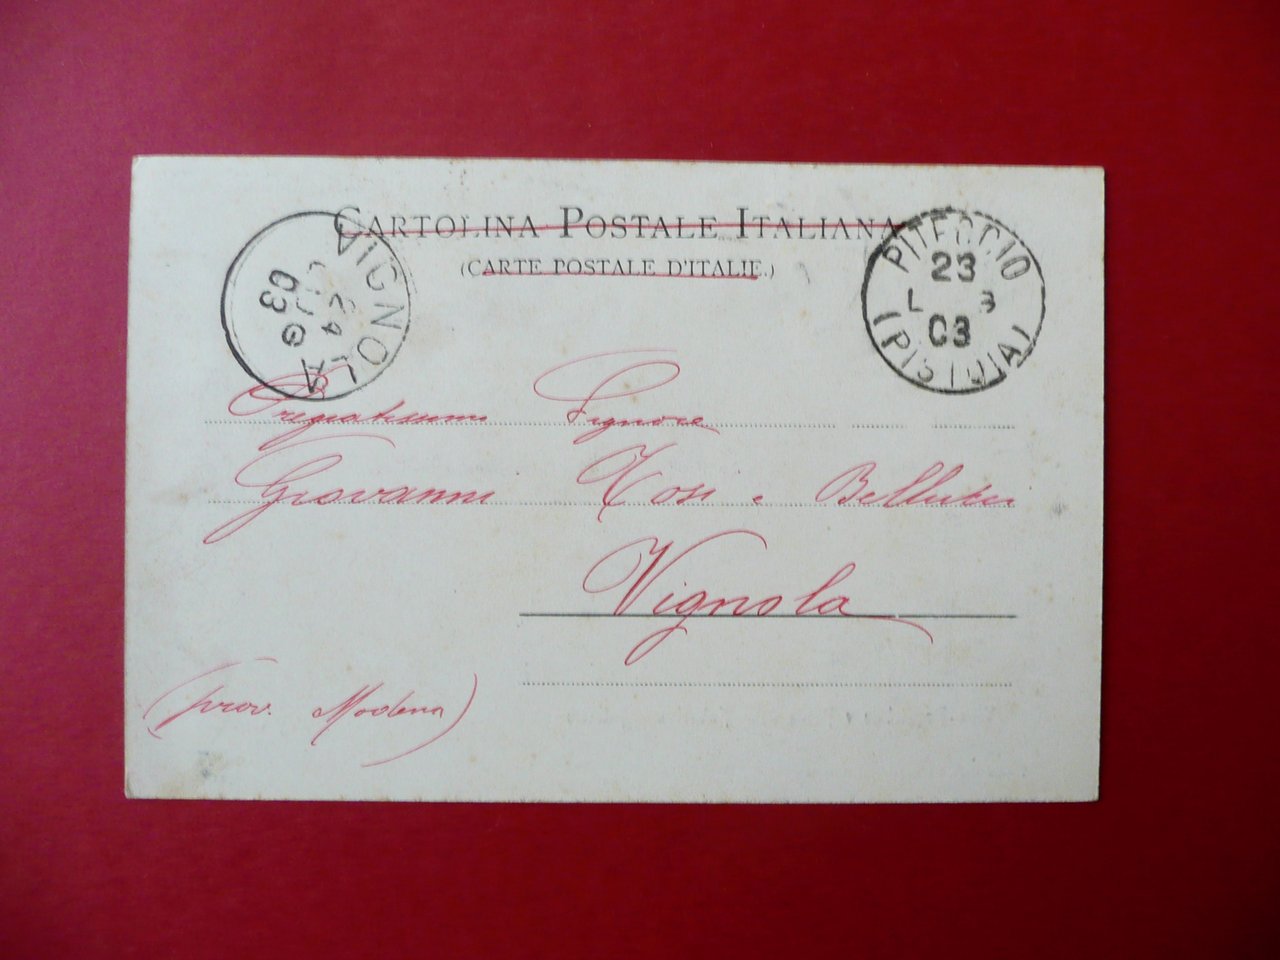 CARTOLINA POSTALE ITALIANA
(CARTE POSTALE D'ITALIE.)
VIGNOLA
24
LUG
03
PITECCIO
23
L 3
03
(PISTOIA)
Pregiatissimo Signore
Giovanni Tosi e Bellucci
Vignola
(prov. Modena)